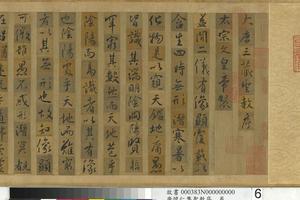 大唐三藏聖教序
太宗文皇帝製
蓋聞二儀有像顯覆載以
含生四時無形潛寒暑以
化物是以窺天鑑地庸愚
皆識其端明陰洞陽賢哲
罕窮其數然而天地苞乎
陰陽而易識者以其有像
也陰陽處乎天地而難窮
者以其無形也故知像顯
可徵雖愚不惑形潛莫覩
故書 000383N000000000
6